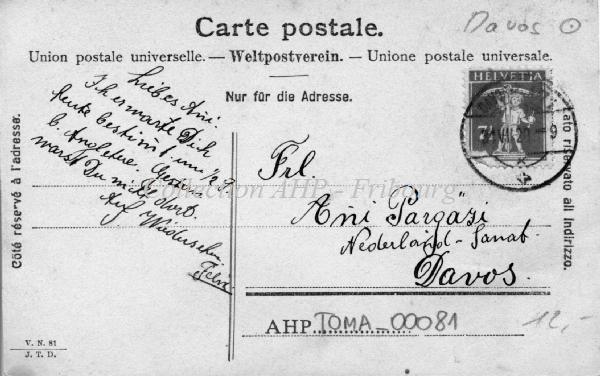 Carte postale.
Davos
Union postale universelle. — Weltpostverein. — Unione postale universale.
Nur für die Adresse.
HELVETIA
Côté réservé à l'adresse.
Lato riservato all' indirizzo.
Liebes Ani.
Ich erwarte Dich
heute bestimmt um 1/2 7
b. Angleterre. Gestern
warst Du nicht dort.
Auf Wiedersehn
Felix
Frl.
Ani Pargäzi
Nederland-Sanat.
Davos.
Collection AHP - Fribourg
AHP TOMA_00081
12,-
V. N. 81
J. T. D.